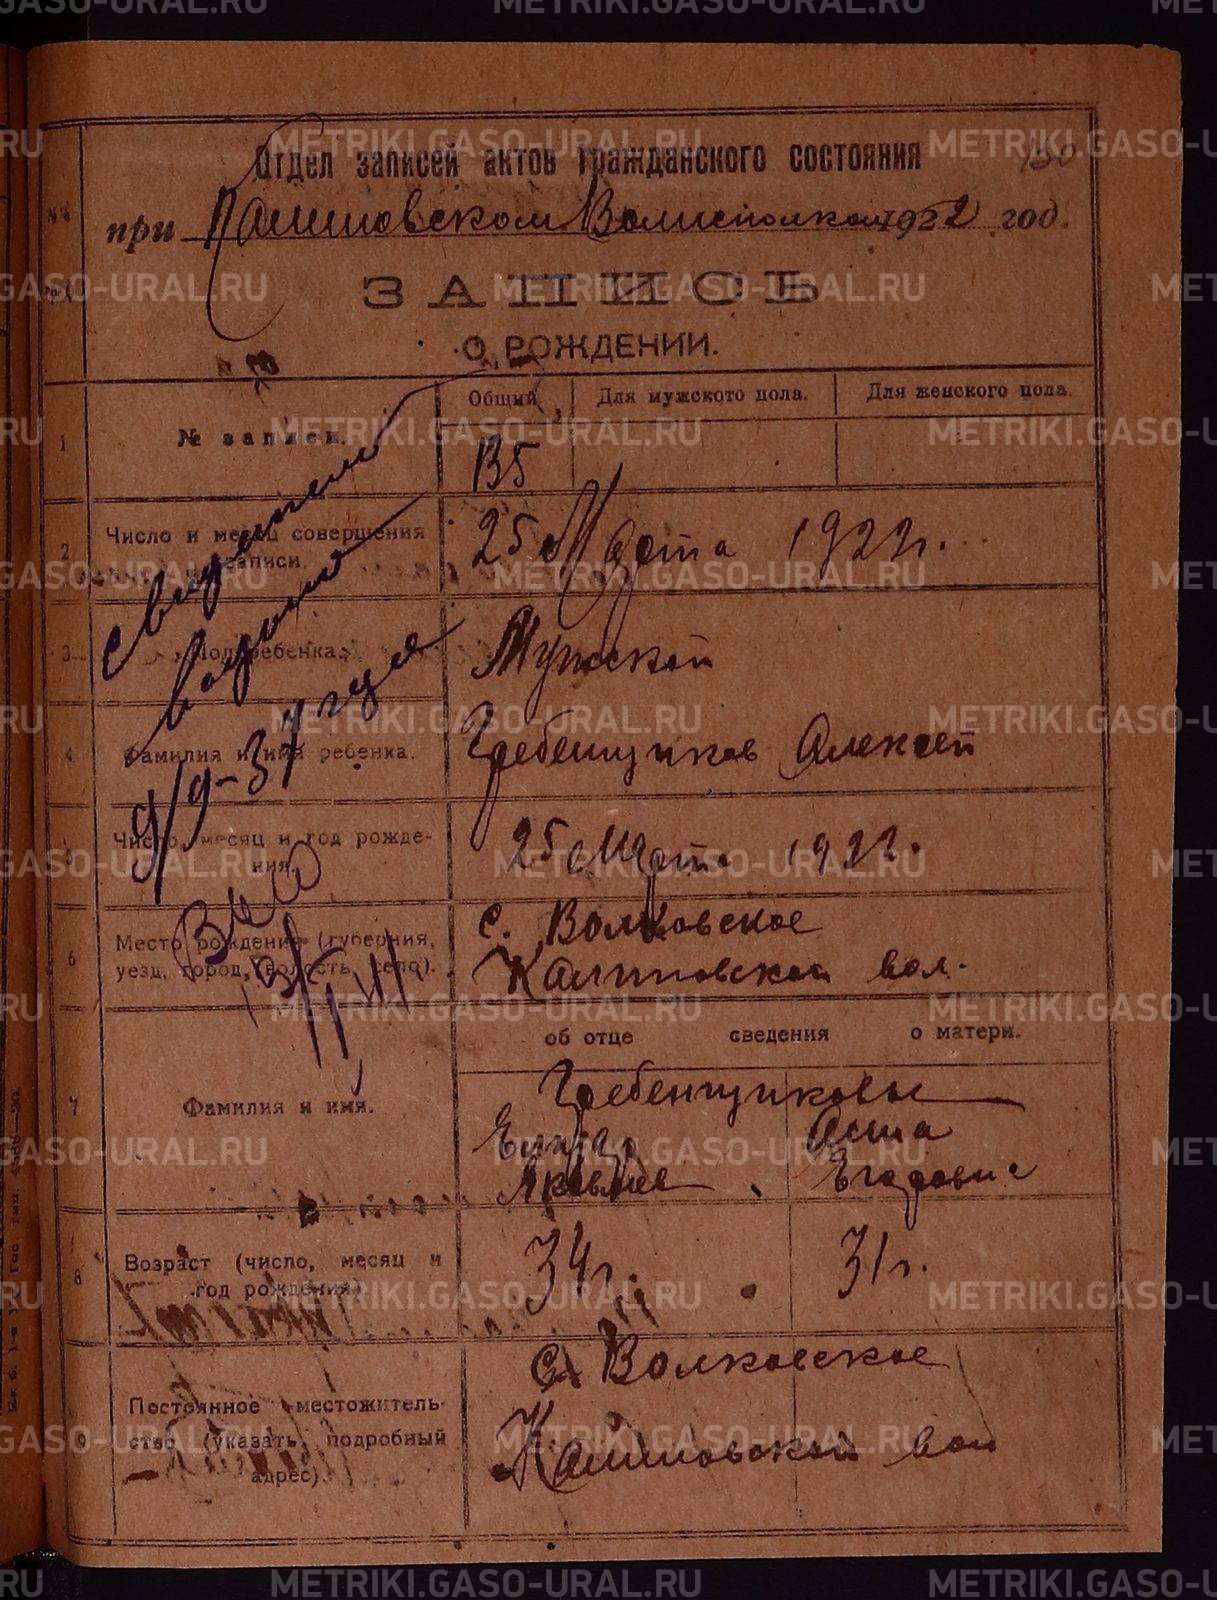 130
Отдел записей актов гражданского состояния
при Калиновском Волисполкоме 1922 год.
ЗАПИСЬ
О РОЖДЕНИИ.
Общий Для мужского пола. Для женского пола.
1 № записи. 135
2 Число и месяц совершения записи. 25 Марта 1922 г.
3 Пол ребенка. Мужской
4 Фамилия и имя ребенка. Гребенщиков Алексей
5 Число, месяц и год рождения. 25 Марта 1922.
6 Место рождения (губерния, с. Волковское
уезд, город, волость, село). Калиновской вол.
об отце сведения о матери.
7 Фамилия и имя. Гребенщиковы
Анна
Яковлев Егоровна
8 Возраст (число, месяц и год рождения) 34 г. 31 г.
9 Постоянное местожитель- С. Волковское
ство (указать подробный Калиновской вол
адрес).
9/9-37 года
METRIKI.GASO-URAL.RU